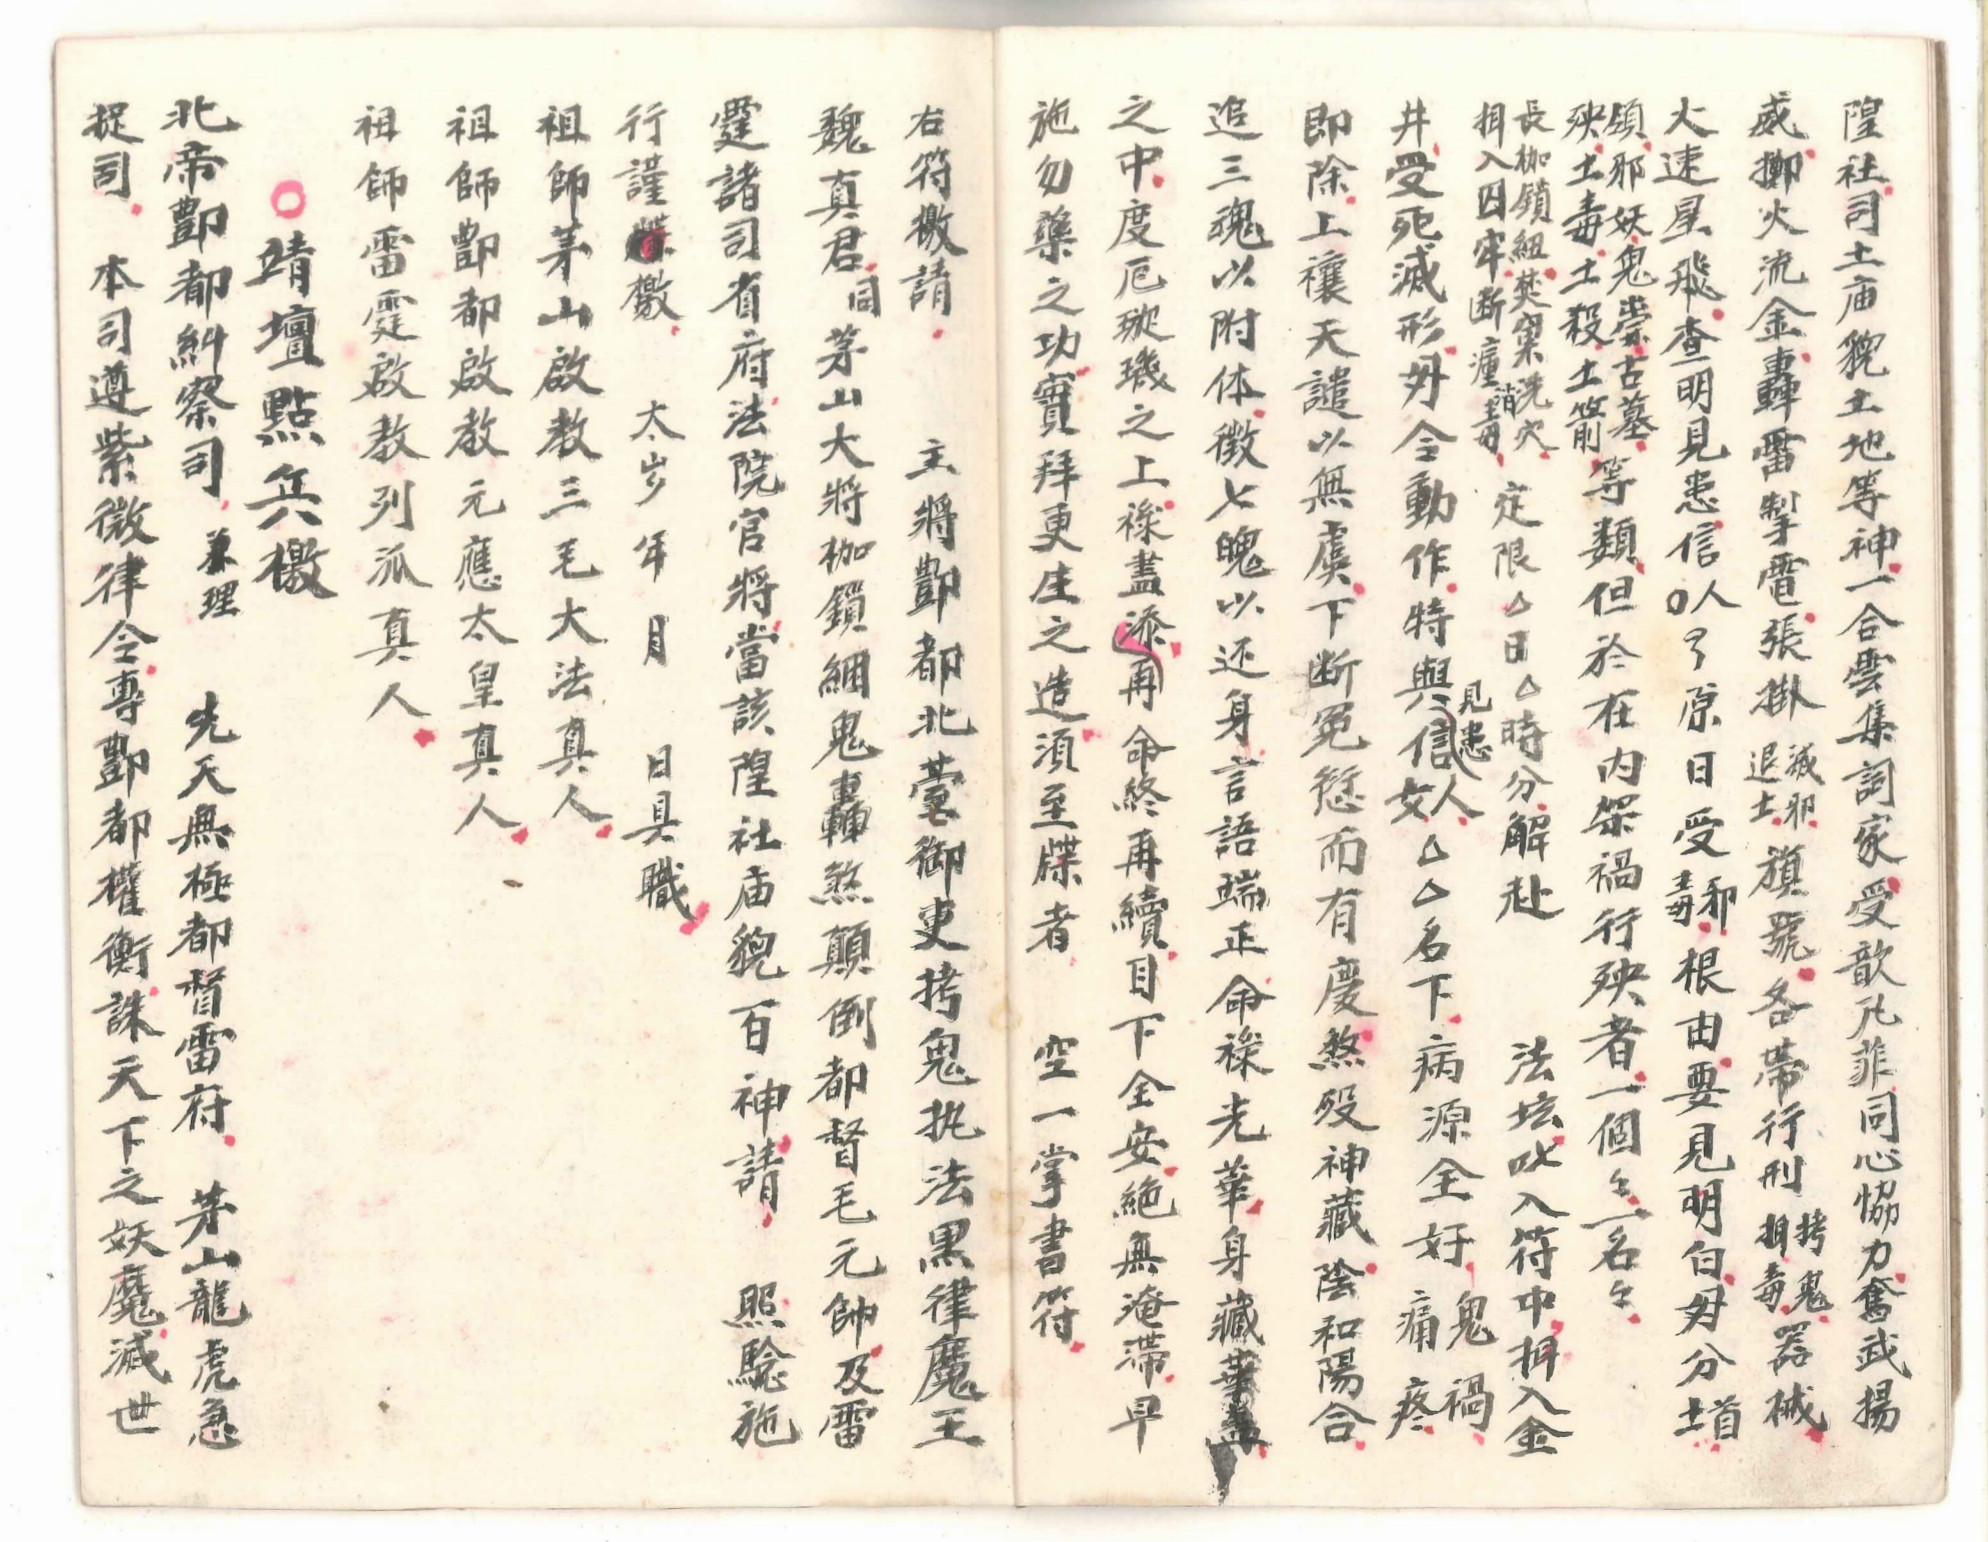 隍社司土庙貌土地等神一合雲集詞家受歆凡菲同心恊力奮武揚
威擲火流金轟雷掣電張掛滅邪退土旗號各帶行刑拷鬼押毒器械
火速星飛查明見患信人原日受邪毒根由要見明白毋分土首
領邪妖鬼祟古墓殃土毒土殺土箭等類但於在内架禍行殃者一個々一名々
長枷鎖紐焚巢洗穴押入囚牢断瘟消毒定限△日△時分解赴 法坛吆入符中押入金
井受死滅形毋令動作特與見患信人女△△名下病源全好鬼禍痛疼
即除上禳天譴以無虞下断冤愆而有慶煞殁神藏陰和陽合
追三魂以附体徵七魄以还身言語端正命祿光華身藏
之中度厄璇璣之上祿盡添再命終再續目下全安絶無淹滯早
施勿藥之功實拜更生之造湏至牒者 空一掌書符
右符檄請 主將酆都北臺御吏拷鬼执法黒律魔王
魏真君同茅山大將枷鎖綑鬼轟煞顛倒都督毛元帥及雷
霆諸司省府法院官將當該隍社庙貌百神請 照騐施
行謹檄 太岁 年 月 日具職
祖師茅山啟教三毛大法真人
祖師酆都啟教元應太皇真人
祖師雷霆啟教列派真人
○靖壇點兵檄
北帝酆都糾察司兼理 先天無極都督雷府 茅山龍虎急
捉司 本司遵紫微律令專酆都權衡誅天下之妖魔滅世